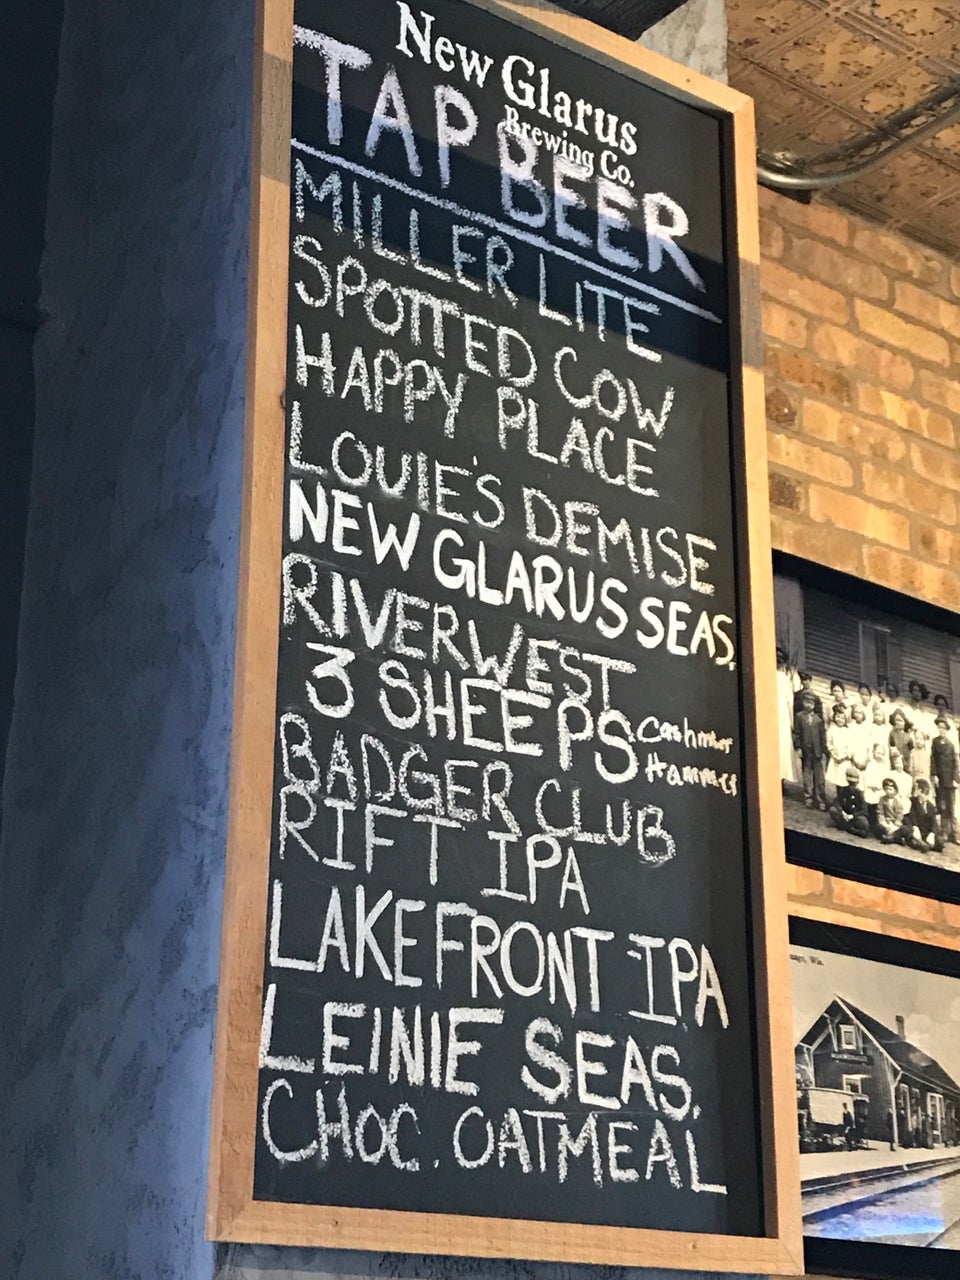 New Glarus
Brewing Co.
TAP BEER
MILLER LITE
SPOTTED COW
HAPPY PLACE
LOUIE'S DEMISE
NEW GLARUS SEAS.
RIVERWEST
3 SHEEPS Cashmer
Hammer
BADGER CLUB
RIFT IPA
LAKEFRONT IPA
LEINIE SEAS.
CHOC. OATMEAL